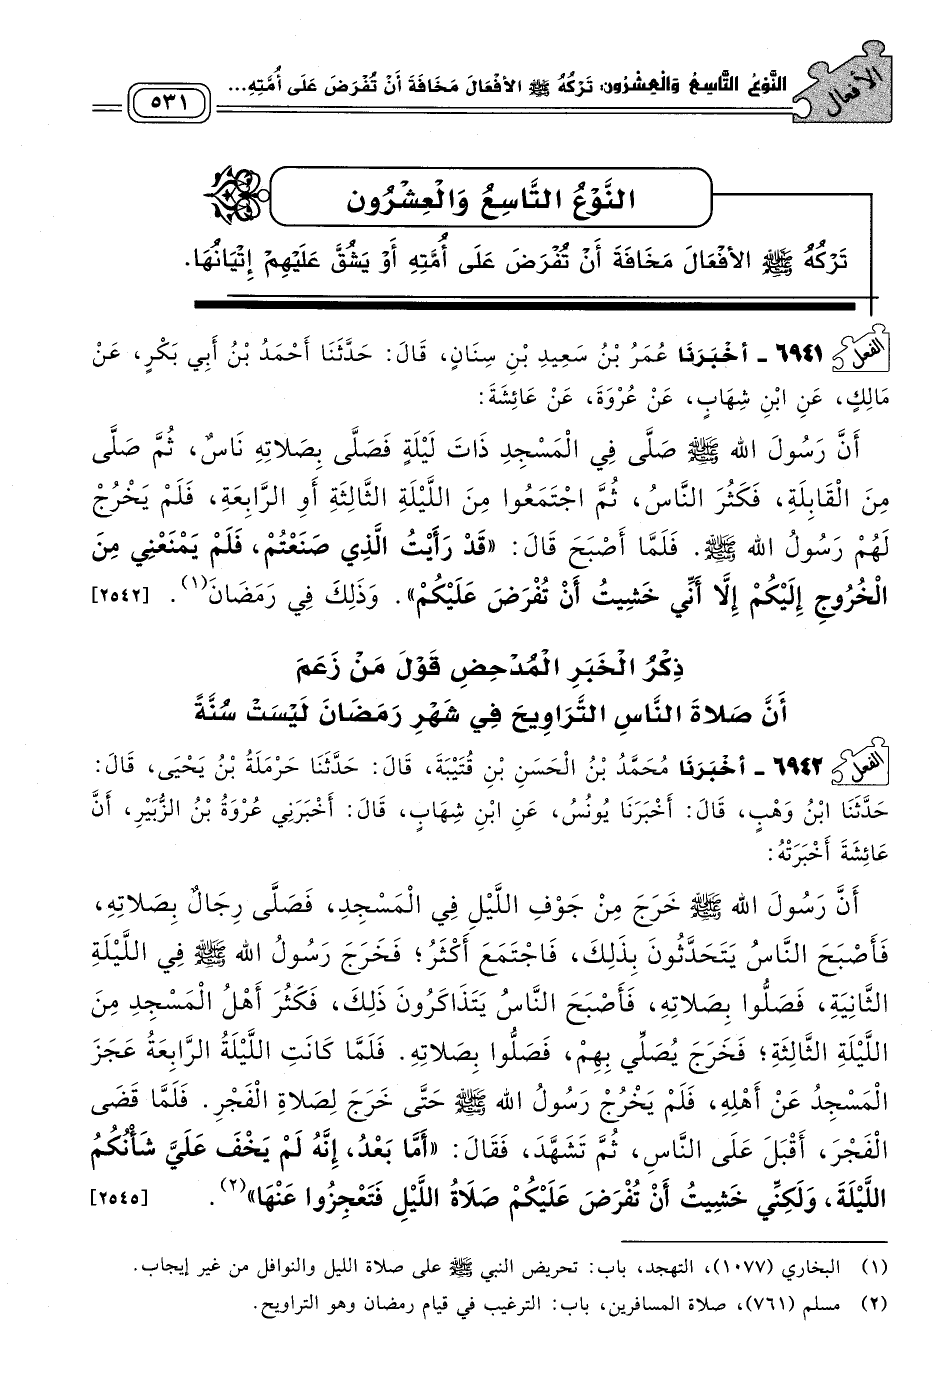 الأفعال
النَّوْعُ التَّاسِعُ وَالْعِشْرُون: تَرْكُهُ ﷺ الأفْعَالَ مَخَافَةَ أَنْ تُفْرَضَ عَلَى أُمَّتِهِ...
٥٣١
النَّوْعُ التَّاسِعُ وَالْعِشْرُون
تَرْكُهُ ﷺ الأفْعَالَ مَخَافَةَ أَنْ تُفْرَضَ عَلَى أُمَّتِهِ أَوْ يَشُقَّ عَلَيْهِمْ إِتْيَانُهَا.
الفعل ٦٩٤١ - أَخْبَرَنَا عُمَرُ بْنُ سَعِيدِ بْنِ سِنَانٍ، قَالَ: حَدَّثَنَا أَحْمَدُ بْنُ أَبِي بَكْرٍ، عَنْ
مَالِكٍ، عَنِ ابْنِ شِهَابٍ، عَنْ عُرْوَةَ، عَنْ عَائِشَةَ:
أَنَّ رَسُولَ الله ﷺ صَلَّى فِي الْمَسْجِدِ ذَاتَ لَيْلَةٍ فَصَلَّى بِصَلاتِهِ نَاسٌ، ثُمَّ صَلَّى
مِنَ الْقَابِلَةِ، فَكَثُرَ النَّاسُ، ثُمَّ اجْتَمَعُوا مِنَ اللَّيْلَةِ الثَّالِثَةِ أَوِ الرَّابِعَةِ، فَلَمْ يَخْرُجْ
لَهُمْ رَسُولُ الله ﷺ. فَلَمَّا أَصْبَحَ قَالَ: «قَدْ رَأَيْتُ الَّذِي صَنَعْتُمْ، فَلَمْ يَمْنَعْنِي مِنَ
الْخُرُوجِ إِلَيْكُمْ إِلَّا أَنِّي خَشِيتُ أَنْ تُفْرَضَ عَلَيْكُمْ». وَذَلِكَ فِي رَمَضَانَ(١). [٢٥٤٢]
ذِكْرُ الْخَبَرِ الْمُدْحِضِ قَوْلَ مَنْ زَعَمَ
أَنَّ صَلاةَ النَّاسِ التَّرَاوِيحَ فِي شَهْرِ رَمَضَانَ لَيْسَتْ سُنَّةً
الفعل ٦٩٤٢ - أَخْبَرَنَا مُحَمَّدُ بْنُ الْحَسَنِ بْنِ قُتَيْبَةَ، قَالَ: حَدَّثَنَا حَرْمَلَةُ بْنُ يَحْيَى، قَالَ:
حَدَّثَنَا ابْنُ وَهْبٍ، قَالَ: أَخْبَرَنَا يُونُسُ، عَنِ ابْنِ شِهَابٍ، قَالَ: أَخْبَرَنِي عُرْوَةُ بْنُ الزُّبَيْرِ، أَنَّ
عَائِشَةَ أَخْبَرَتْهُ:
أَنَّ رَسُولَ الله ﷺ خَرَجَ مِنْ جَوْفِ اللَّيْلِ فِي الْمَسْجِدِ، فَصَلَّى رِجَالٌ بِصَلاتِهِ،
فَأَصْبَحَ النَّاسُ يَتَحَدَّثُونَ بِذَلِكَ، فَاجْتَمَعَ أَكْثَرُ؛ فَخَرَجَ رَسُولُ الله ﷺ فِي اللَّيْلَةِ
الثَّانِيَةِ، فَصَلُّوا بِصَلاتِهِ، فَأَصْبَحَ النَّاسُ يَتَذَاكَرُونَ ذَلِكَ، فَكَثُرَ أَهْلُ الْمَسْجِدِ مِنَ
اللَّيْلَةِ الثَّالِثَةِ؛ فَخَرَجَ يُصَلِّي بِهِمْ، فَصَلُّوا بِصَلاتِهِ. فَلَمَّا كَانَتِ اللَّيْلَةُ الرَّابِعَةُ عَجَزَ
الْمَسْجِدُ عَنْ أَهْلِهِ، فَلَمْ يَخْرُجْ رَسُولُ الله ﷺ حَتَّى خَرَجَ لِصَلاةِ الْفَجْرِ. فَلَمَّا قَضَى
الْفَجْرَ، أَقْبَلَ عَلَى النَّاسِ، ثُمَّ تَشَهَّدَ، فَقَالَ: «أَمَّا بَعْدُ، إِنَّهُ لَمْ يَخْفَ عَلَيَّ شَأْنُكُمُ
اللَّيْلَةَ، وَلَكِنِّي خَشِيتُ أَنْ تُفْرَضَ عَلَيْكُمْ صَلاةُ اللَّيْلِ فَتَعْجِزُوا عَنْهَا»(٢). [٢٥٤٥]
(١) البخاري (١٠٧٧)، التهجد، باب: تحريض النبي ﷺ على صلاة الليل والنوافل من غير إيجاب.
(٢) مسلم (٧٦١)، صلاة المسافرين، باب: الترغيب في قيام رمضان وهو التراويح.